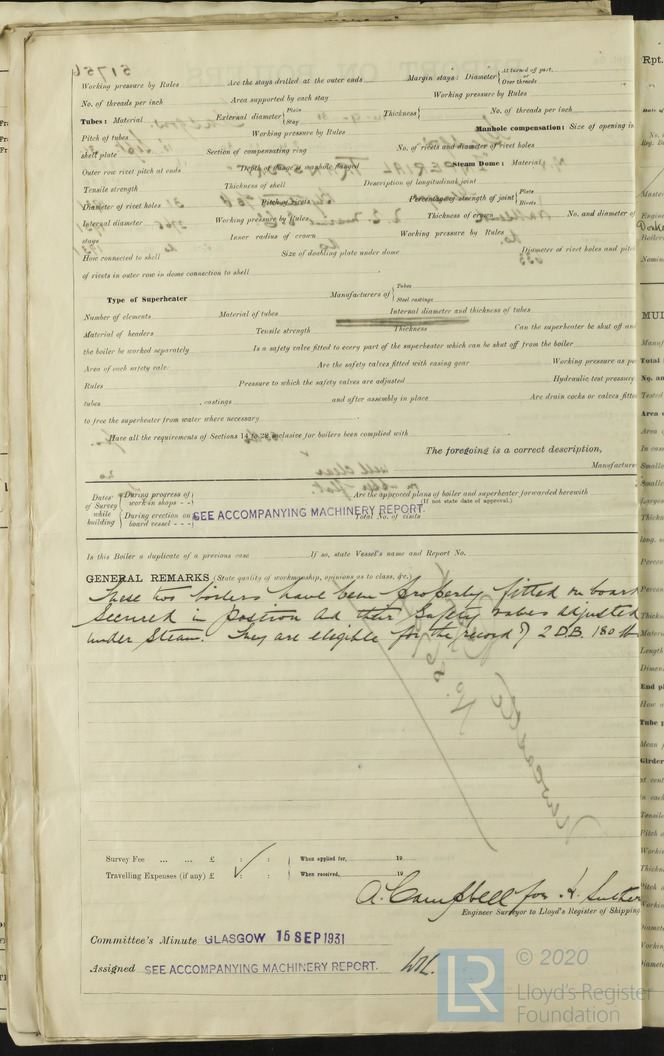 Working pressure by Rules Are the stays drilled at the outer ends Margin stays: Diameter { At turned off part, or Over threads
No. of threads per inch Area supported by each stay Working pressure by Rules
Tubes: Material External diameter { Plain Stay Thickness { No. of threads per inch
Pitch of tubes Working pressure by Rules Manhole compensation: Size of opening in
shell plate Section of compensating ring No. of rivets and diameter of rivet holes
Outer row rivet pitch at ends Depth of flange if manhole flanged Steam Dome: Material
Tensile strength Thickness of shell Description of longitudinal joint
Diameter of rivet holes Pitch of rivets Percentage of strength of joint { Plate Rivets
Internal diameter Working pressure by Rules Thickness of crown No. and diameter of
stays Inner radius of crown Working pressure by Rules
How connected to shell Size of doubling plate under dome Diameter of rivet holes and pitch
of rivets in outer row in dome connection to shell
Type of Superheater Manufacturers of { Tubes Steel castings
Number of elements Material of tubes Internal diameter and thickness of tubes
Material of headers Tensile strength Thickness Can the superheater be shut off and
the boiler be worked separately Is a safety valve fitted to every part of the superheater which can be shut off from the boiler
Area of each safety valve Are the safety valves fitted with easing gear Working pressure as per
Rules Pressure to which the safety valves are adjusted Hydraulic test pressure
tubes , castings and after assembly in place Are drain cocks or valves fitted
to free the superheater from water where necessary
Have all the requirements of Sections 14 to 22 inclusive for boilers been complied with
The foregoing is a correct description,
Manufacture
Dates of Survey while building { During progress of work in shops - - During erection on board vessel - - -
Are the approved plans of boiler and superheater forwarded herewith
(If not state date of approval.)
SEE ACCOMPANYING MACHINERY REPORT.
Total No. of visits
Is this Boiler a duplicate of a previous case If so, state Vessel's name and Report No.
GENERAL REMARKS (State quality of workmanship, opinions as to class, &c.)
These two boilers have been properly fitted on board
secured in position and their safety valves adjusted
under steam. They are eligible for the record of 2 D.B. 180 lb
Survey Fee ... ... £ : : When applied for, 19
Travelling Expenses (if any) £ : : When received, 19
A. Campbell for H.
Engineer Surveyor to Lloyd's Register of Shipping
Committee's Minute GLASGOW 15 SEP 1931
Assigned SEE ACCOMPANYING MACHINERY REPORT.
LR
© 2020
Lloyd's Register
Foundation
Rpt.